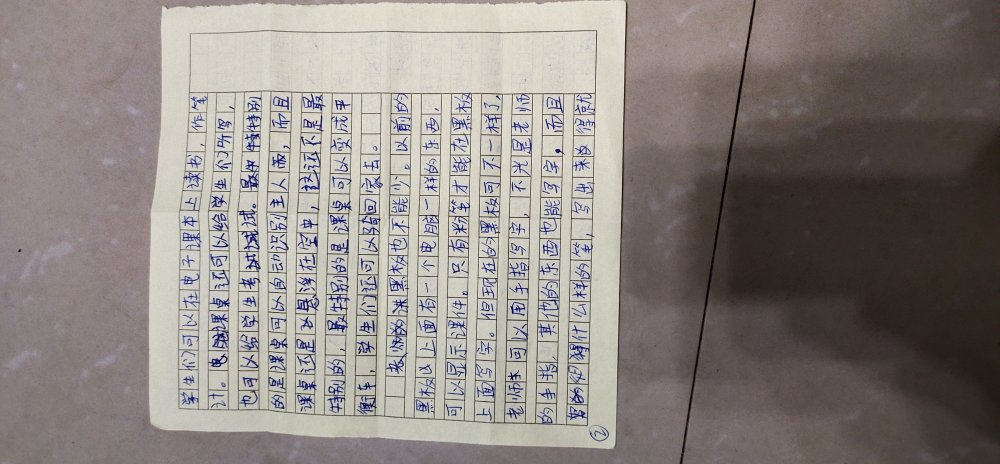 学生们可以在电子课本上读书，作笔
计。课桌还可以给学生们听写，
也可以给学生考试。最特别
的是课桌可以自动识别主人而，而且
课桌还是悬浮在空中，这还不是最
特别的，最特别的是课桌可以变成平
衡车，学生们还可以骑回家去。
黑板也不能少。以前的
黑板上面有一个电脑一样的东西，
可以显示课件。只有粉笔才能在黑板
上面写字。但现在的黑板可不一样了，
老师可以用手指写字，不光是老师
的手指，其他的东西也能写字，而且
什么样的笔，写出来的得就
②